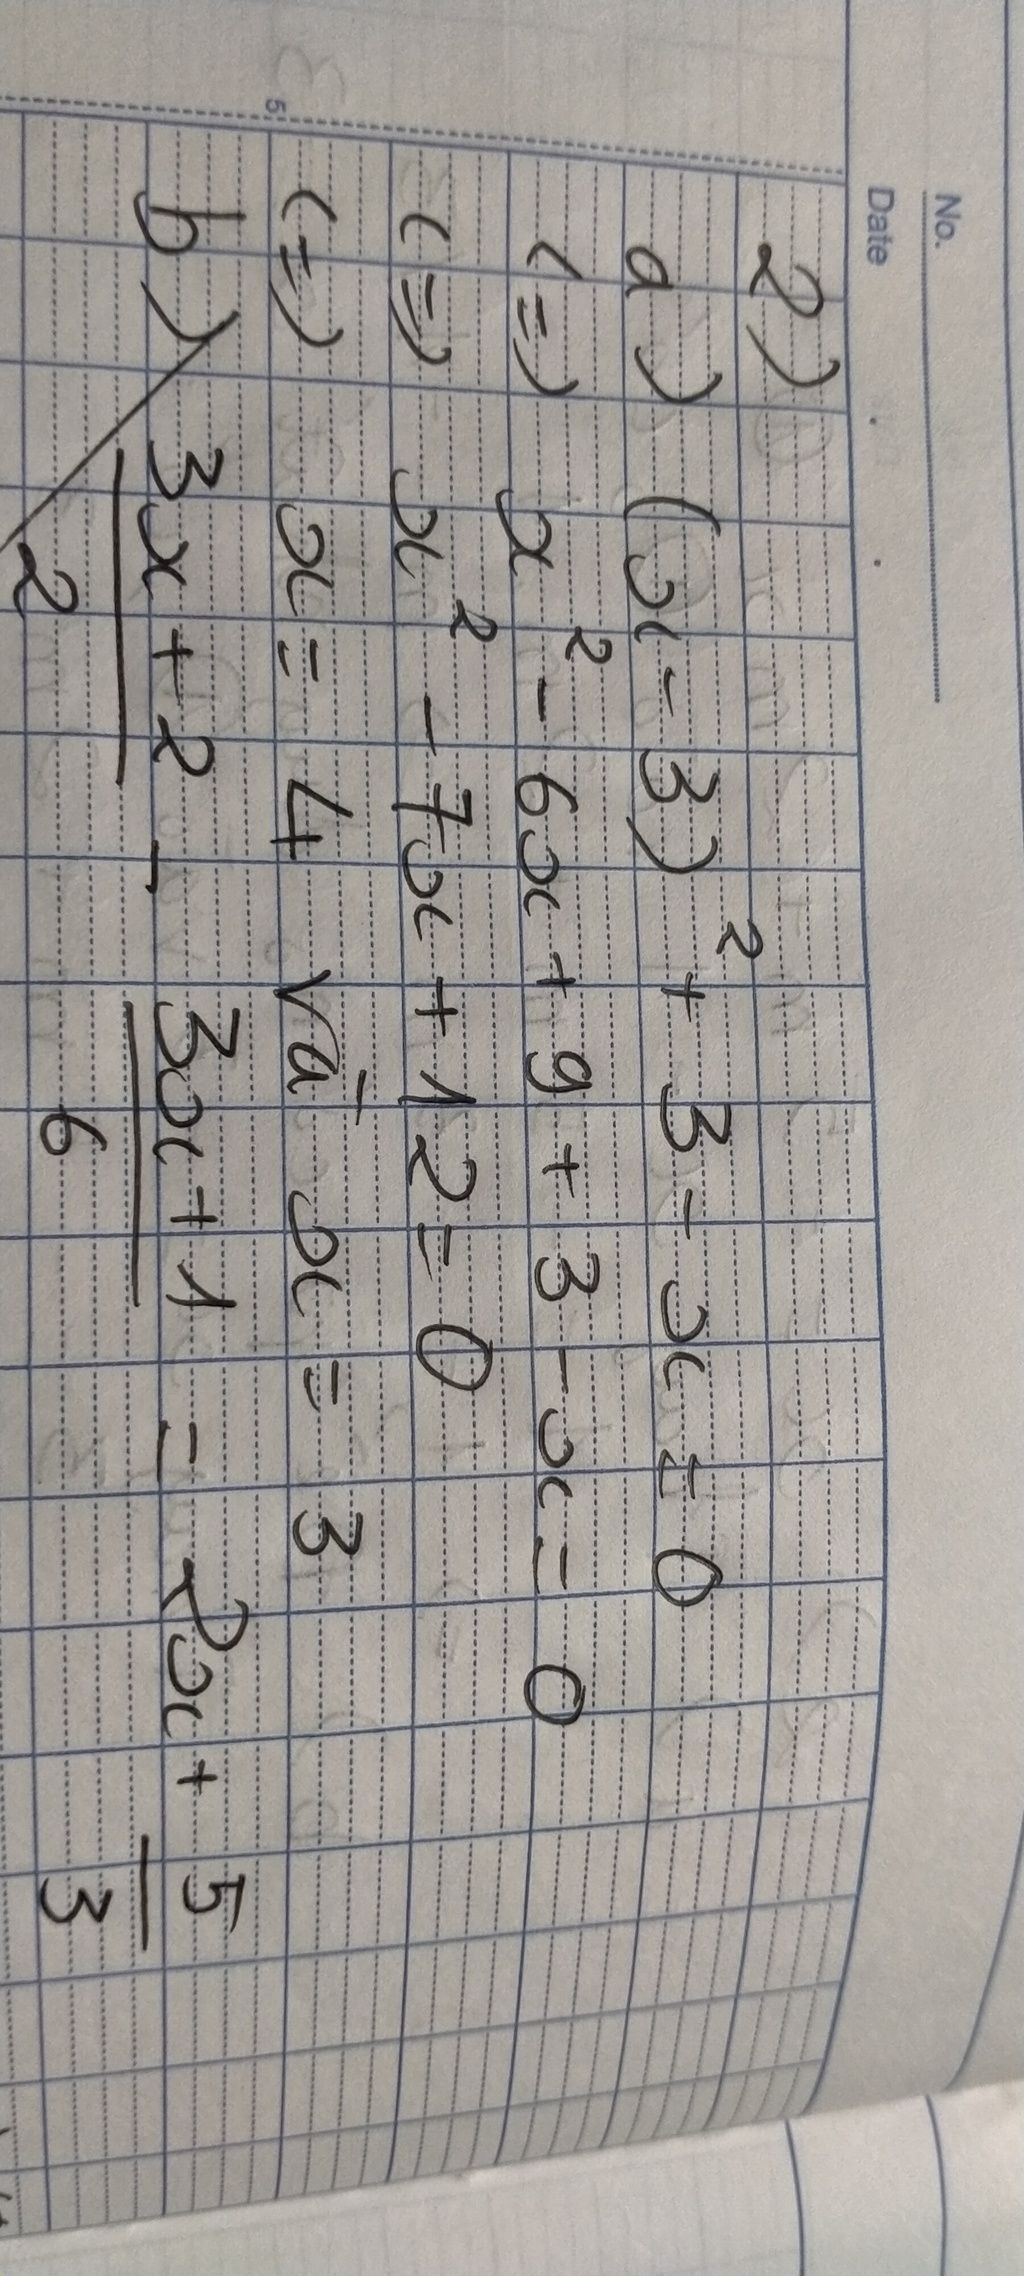 No.
Date
2)
a) (x-3)² + 3 - x = 0
(=) x² - 6x + 9 + 3 - x = 0
(=) x² - 7x + 12 = 0
5
(=) x = 4 và x = 3
b) 3x + 2 / 2 - 3x + 1 / 6 = 2x + 5 / 3